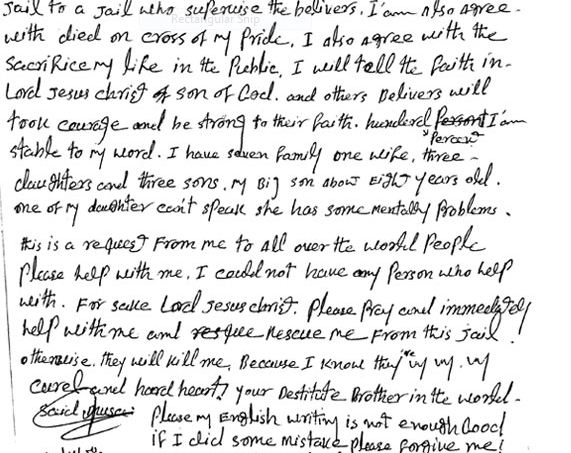 Jail to a Jail who supervise the belivers. I'am also agree-
with died on cross of my Pride. I also agree with the
sacrifice my life in the Public, I will tell the faith in-
Lord Jesus christ of son of God. and others Delivers will
took courage and be strong to their faith. hundered Person I'am
Percent
stable to my word. I have seven family one wife, three-
daughters and three sons. my Big son about Eight years old.
one of my daughter can't speak she has some mentally Problems.
this is a request From me to all over the world People
Please help with me. I could not have any Person who help
with. For sake Lord Jesus christ. Please Pray and immedetely
help with me and resque Rescue me From this jail!
otherwise. they will kill me, Because I know they're vry vry. vry
curel and hard heart! your Destitute Brother in the world.
Said musa
Please my English writing is not enough Good
if I did some mistake please forgive me!
Rectangular Snip